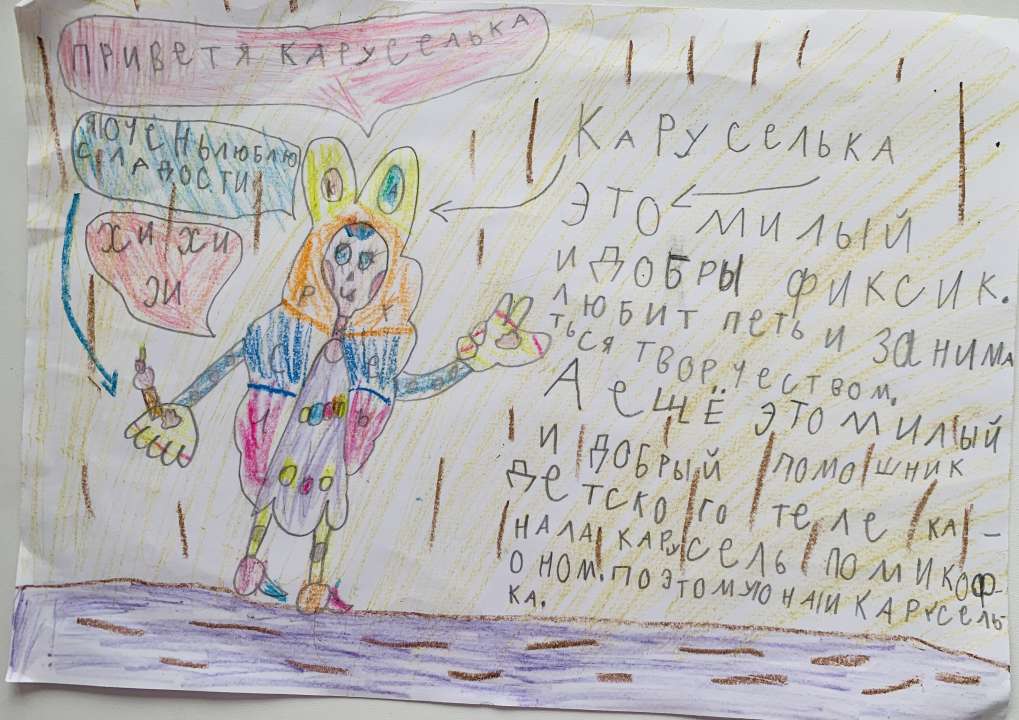 ПРИВЕТ Я КАРУСЕЛЬКА
Я ОЧЕНЬ ЛЮБЛЮ
СЛАДОСТИ
ХИ ХИ
ХИ
КАРУСЕЛЬКА
ЭТО МИЛЫЙ
И ДОБРЫ ФИКСИК.
ЛЮБИТ ПЕТЬ И ЗАНИМА
ТЬСЯ ТВОРЧЕСТВОМ.
А ЕЩЁ ЭТО МИЛЫЙ
И ДОБРЫЙ ПОМОШНИК
ДЕТСКОГО ТЕЛЕ КА-
НАЛА КАРУСЕЛЬ ПОМИКОФ-
ОНОМ. ПОЭТОМУ ОНА И КАРУСЕЛЬ-
КА.